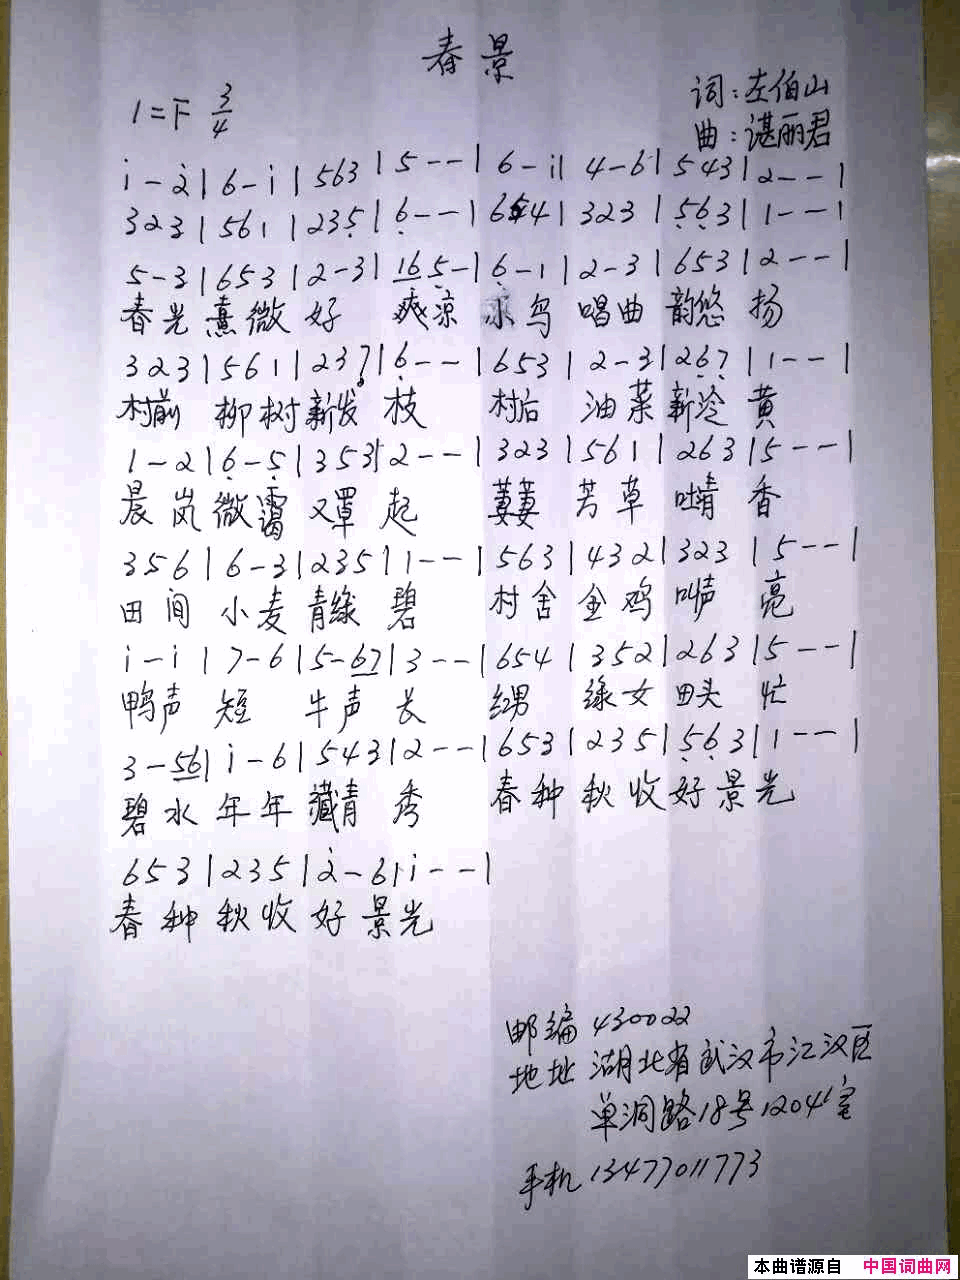 春景
1=F 3/4
词:左伯山
曲:谌丽君
i - 2 | 6 - i | 563 | 5 - - | 6 - i | 4 - 6 | 543 | 2 - - |
323 | 561 | 235 | 6 - - | 654 | 323 | 563 | 1 - - |
5 - 3 | 653 | 2 - 3 | 16 5 - | 6 - 1 | 2 - 3 | 653 | 2 - - |
春光 熹微 好 爽凉 鸟 唱曲 韵悠 扬
323 | 561 | 237 | 6 - - | 653 | 2 - 3 | 267 | 1 - - |
村前 柳树 新发 枝 村后 油菜 新 黄
1 - 2 | 6 - 5 | 353 | 2 - - | 323 | 561 | 263 | 5 - - |
晨岚 微霭 又罩 起 萋萋 芳草 吐清 香
356 | 6 - 3 | 235 | 1 - - | 563 | 432 | 323 | 5 - - |
田间 小麦 青绿 碧 村舍 金鸡 叫声 亮
i - i | 7 - 6 | 5 - 67 | 3 - - | 654 | 352 | 263 | 5 - - |
鸭声 短 牛声 长 红男 绿女 田头 忙
3 - 56 | i - 6 | 543 | 2 - - | 653 | 235 | 563 | 1 - - |
碧水 年年 藏青 秀 春种 秋收 好景光
653 | 235 | 2 - 6 | i - - |
春种 秋收 好景光
邮编 430022
地址 湖北省武汉市江汉区
单洞路18号1204室
手机 13477011773
本曲谱源自 中国词曲网